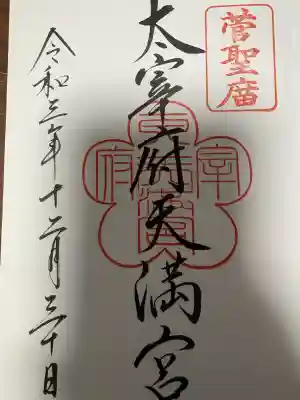 菅聖廟
太宰府天満宮
令和三年十二月三十日